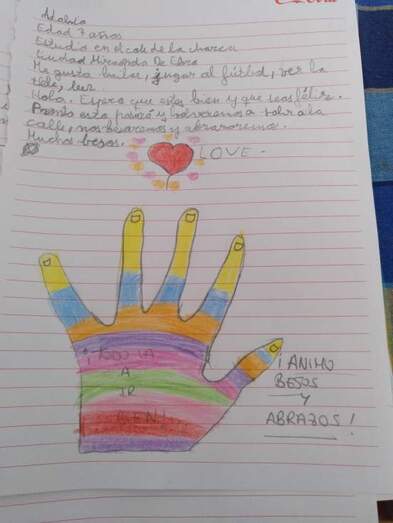 Edad 7 años
Estudia en el cole de la charca
Ciudad Miranda De Ebro
Me gusta bailar, jugar al fútbol, ver la
tele, leer.
Hola. Espero que estes bien y que seas feliz.
Pronto esto pasará y volveremos a salir a la
calle, nos besaremos y abrazaremos.
Muchos besos.
LOVE -
¡TODO VA
A
IR
BIEN!
¡ANIMO
BESOS
Y
ABRAZOS!